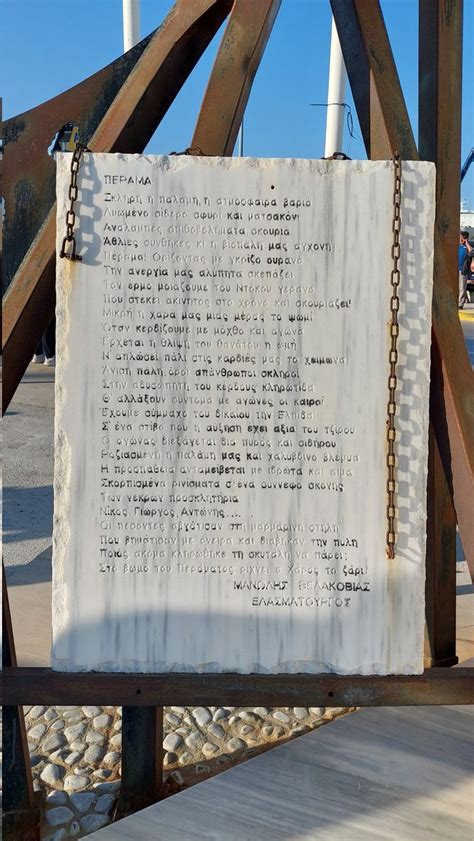 ΠΕΡΑΜΑ
Σκληρή η παλάμη, η ατμοσφαιρα βαριά
Λιωμένο σίδερο σφυρί και ματσακόνι
Αναλαμπές, σπιθοβολήματα σκουριά
Άθλιες συνθήκες κι η βιοπάλη μας αγχόνη!
Πέραμα! Ορίζοντας με γκρίζο ουρανό
Την ανεργία μας αλύπητα σκεπάζει
Τον έρμο μοιάζουμε του Ντόκου γερανό
Που στέκει ακίνητος στο χρόνο και σκουριάζει!
Μικρή η χαρά μας μιας μέρας το ψωμί
Όταν κερδίζουμε με μόχθο και αγώνα
Έρχεται η θλίψη, του θανάτου η
Ν' απλώσει πάλι στις καρδιές μας το χειμώνα!
Άνιση πάλη, όροι απάνθρωποι σκληροί
Στην αδυσώπητη του κέρδους κληρωτίδα
Θ' αλλάξουν σύντομα με αγώνες οι καιροί
Έχουμε σύμμαχο του δικαίου την Ελπίδα!
Σ' ένα στίβο που η αύξηση έχει αξία του τζίρου
Ο αγώνας διεξάγεται δια πυρός και σιδήρου
Ροζιασμένη η παλάμη μας και χαλύβδινο βλέμμα
Η προσπάθεια ανταμείβεται με ιδρώτα και αίμα
Σκορπισμένα ρινίσματα σ' ένα σύννεφο σκόνης
Των νεκρών προσκλητήρια
Νίκος, Γιώργος, Αντώνης.....
Οι πεσόντες αβγάτισαν στη μαρμάρινη στήλη
Που βημάτισαν με όνειρα και διάβηκαν την πύλη
Ποιός ακόμα κληρώθηκε τη σκυτάλη να πάρει;
Στο βωμό του Περάματος ρίχνει ο Χάρος το ζάρι!
ΜΑΝΩΛΗΣ ΒΕΛΑΚΟΒΙΑΣ
ΕΛΑΣΜΑΤΟΥΡΓΟΣ